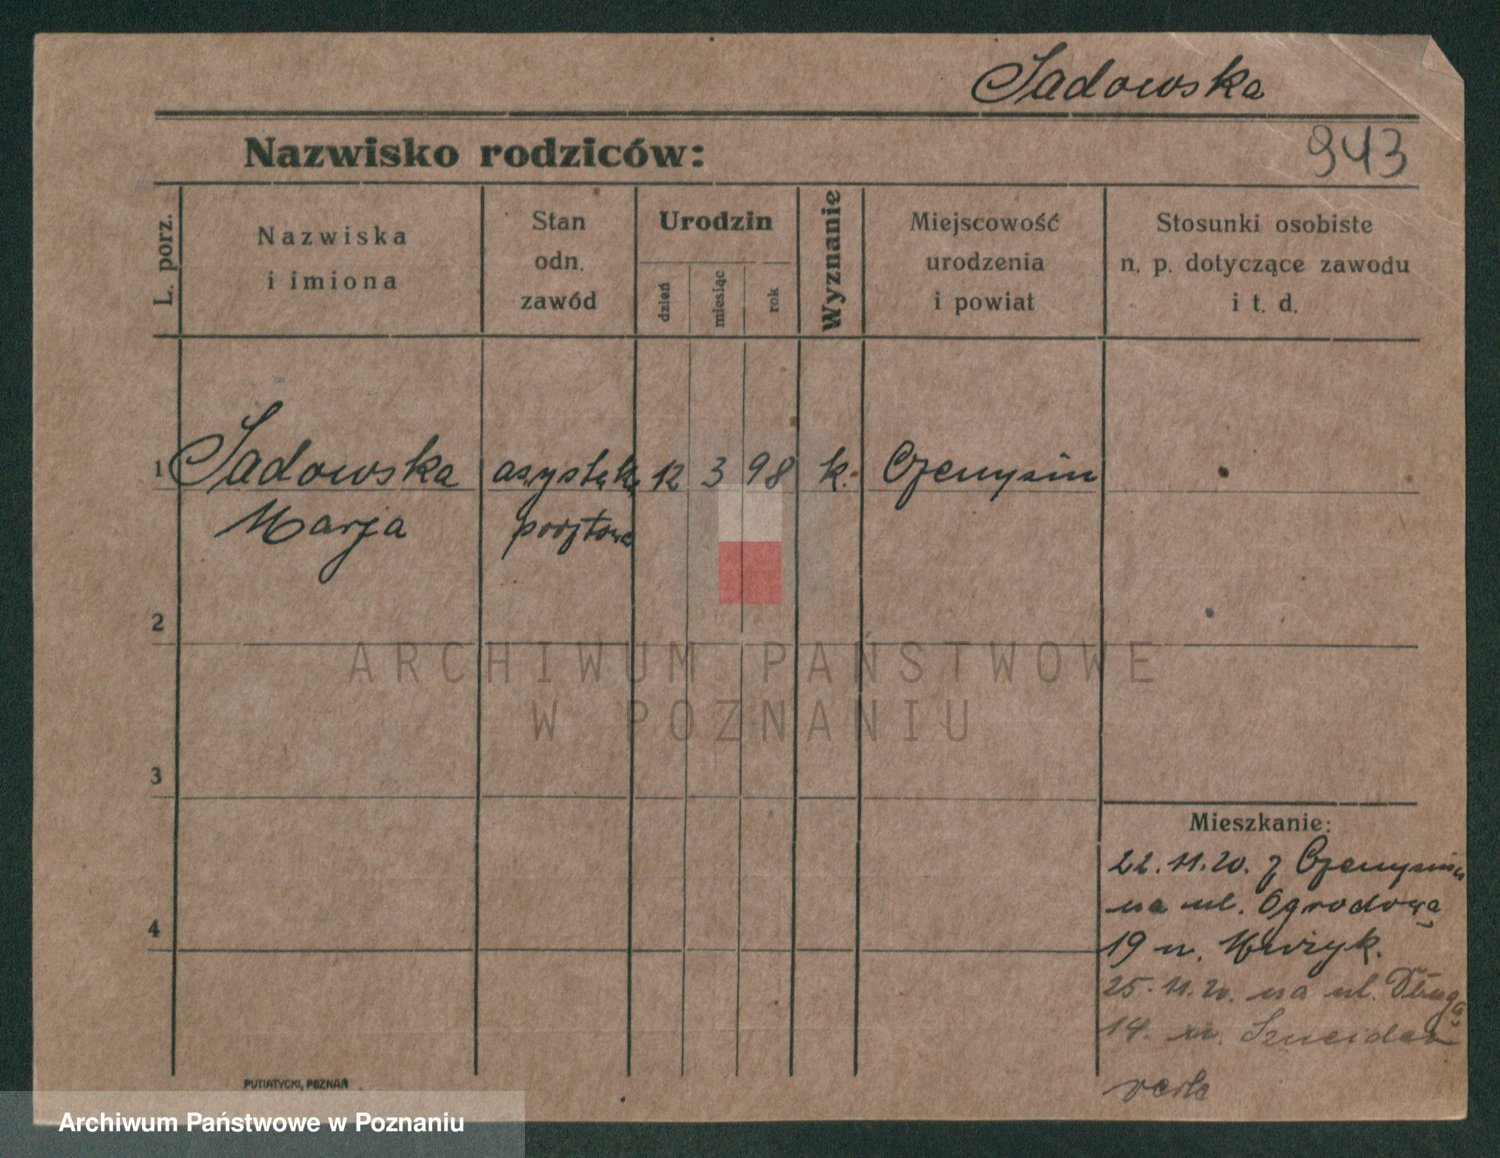 Sadowska
Nazwisko rodziców:
943
L. porz.
Nazwiska
i imiona
Stan
odn.
zawód
Urodzin
dzień
miesiąc
rok
Wyznanie
Miejscowość
urodzenia
i powiat
Stosunki osobiste
n. p. dotyczące zawodu
i t. d.
1 Sadowska asystętk. 12 3 98 k. Czempiń
Marja pocztowa
2
ARCHIWUM PAŃSTWOWE
W POZNANIU
3
Mieszkanie:
22.11.20. z Czempinia
na ul. Ogrodową
4
19 u.
25.11.20. na ul. Długą
14. u.
PUTIATYCKI, POZNAŃ
Archiwum Państwowe w Poznaniu